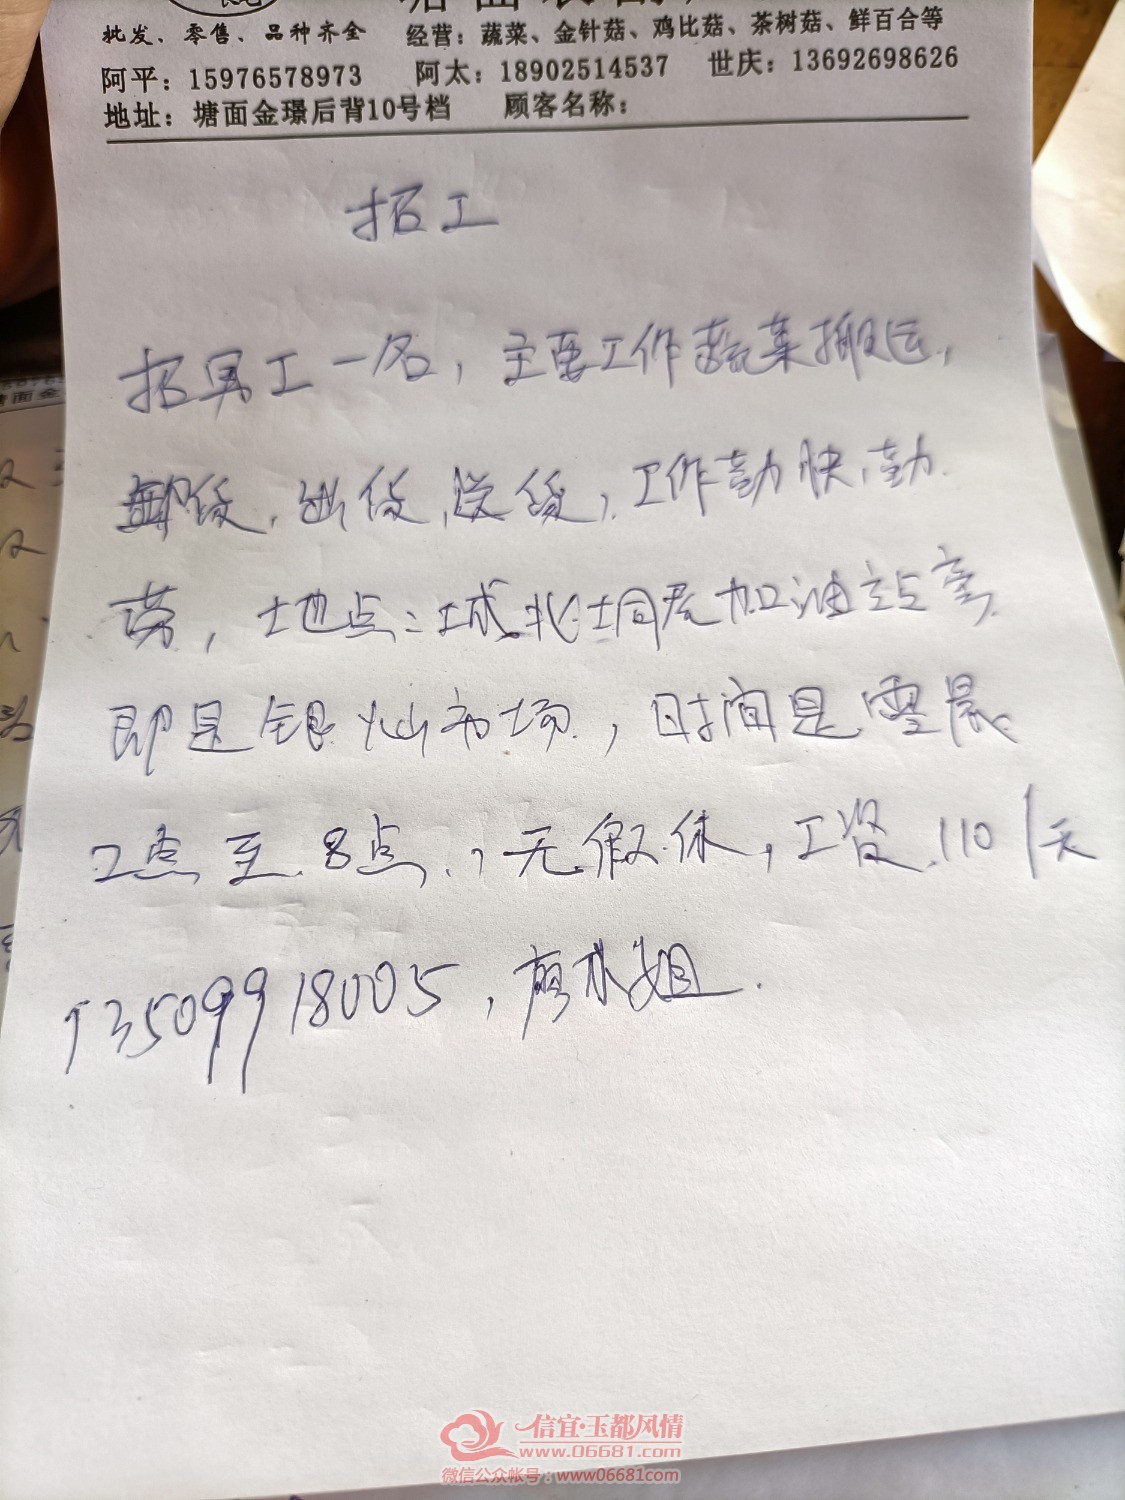 批发、零售、品种齐全 经营：蔬菜、金针菇、鸡比菇、茶树菇、鲜百合等
阿平：15976578973 阿太：18902514537 世庆：13692698626
地址：塘面金璟后背10号档 顾客名称：
招工
招男工一名，主要工作蔬菜搬运，
卸货，出货，送货，工作勤快，勤
劳，地点：城北垌尾加油站旁
即是银灿市场，时间是零晨
2点至8点，无假休，工资110/天
13509918005，
姐.
塘面金
信宜·玉都风情
www.06681.com
微信公众帐号：www06681com